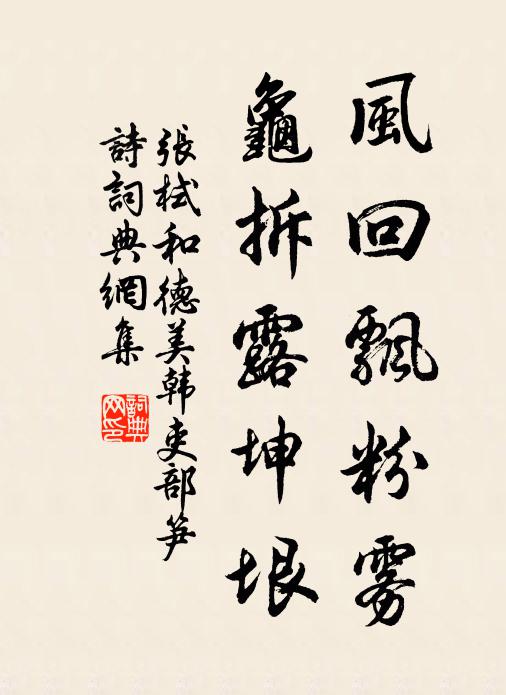 風回飄粉雾
龜拆露坤垠
張栻和德美韩吏部笋
詩詞典網集
詞典网印